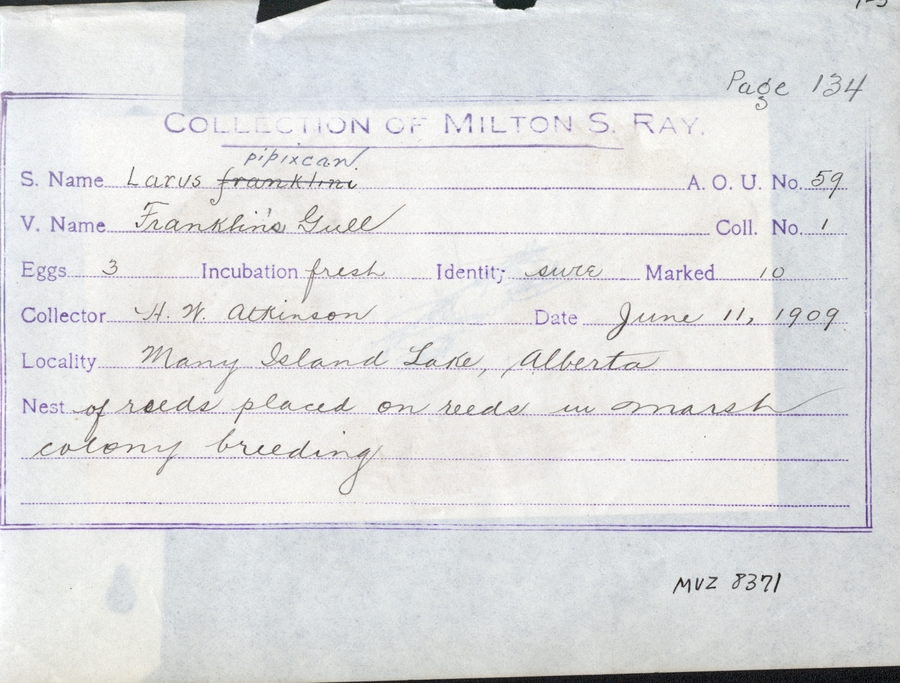 Page 134
COLLECTION OF MILTON S. RAY.
pipixcan
S. Name Larus franklini A. O. U. No. 59
V. Name Franklin's Gull Coll. No. 1
Eggs 3 Incubation fresh Identity sure Marked 10
Collector H. W. Atkinson Date June 11, 1909
Locality Many Island Lake, Alberta
Nest of reeds placed on reeds in marsh
colony breeding
MVZ 8371